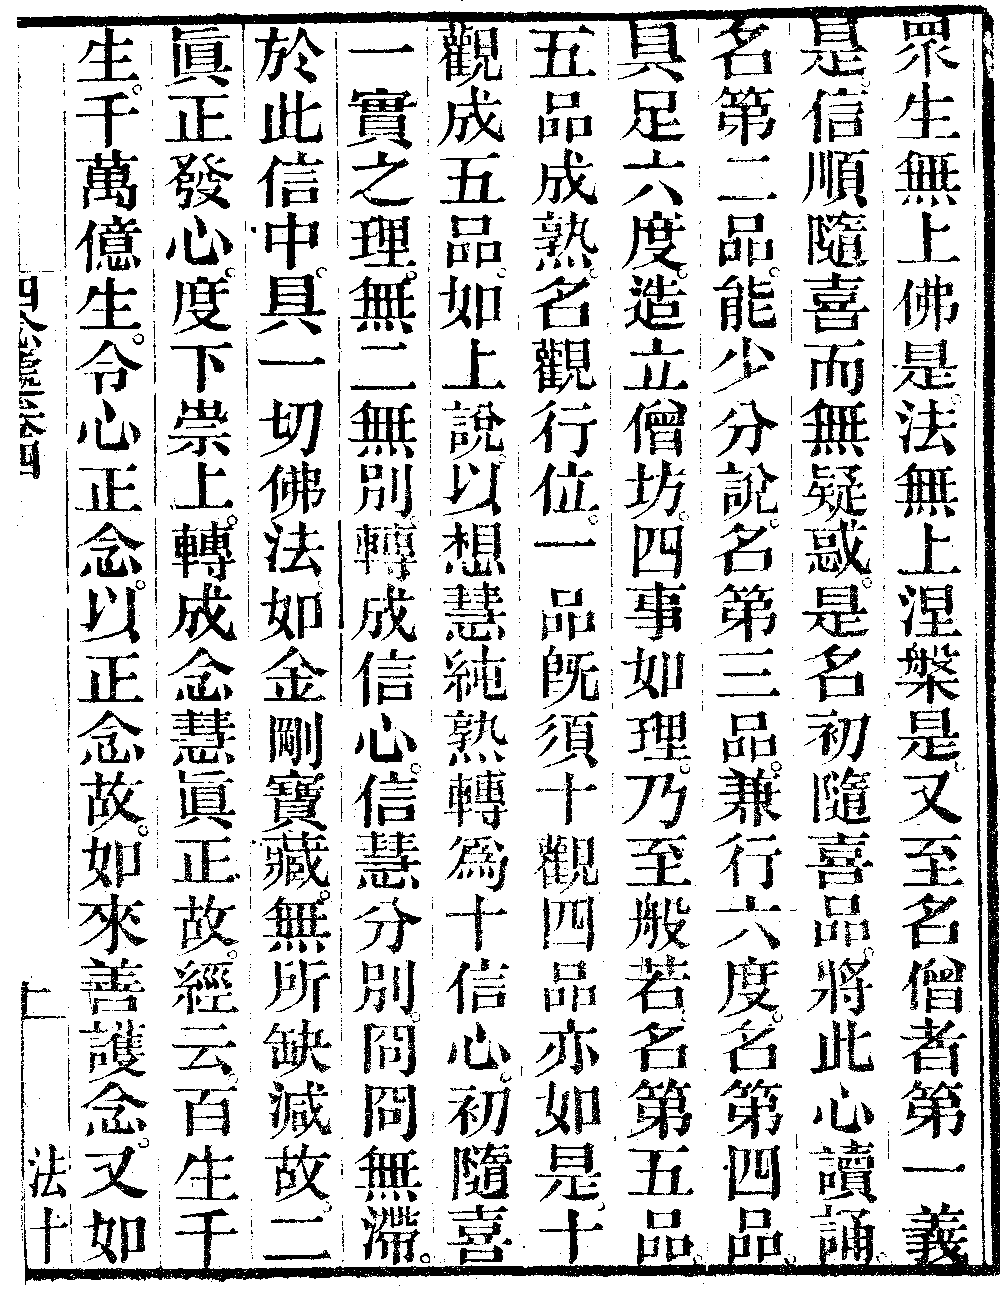 眾生無上佛是。法無上涅槃是。又至名僧者第一義
是。信順隨喜而無疑惑。是名初隨喜品。將此心讀誦。
名第二品。能少分說。名第三品。兼行六度。名第四品。
具足六度。造立僧坊。四事如理。乃至般若。名第五品。
五品成熟。名觀行位。一品旣須十觀四品亦如是。十
觀成五品。如上說。以想慧純熟轉為十信心。初隨喜
一實之理。無二無別。轉成信心。信慧分別。冏冏無滯。
於此信中。具一切佛法。如金剛寶藏。無所缺減故。二
眞正發心。度下崇上。轉成念慧眞正故。經云。百生千
生。千萬億生。令心正念。以正念故。如來善護念。又如
四念處卷四
上
法十